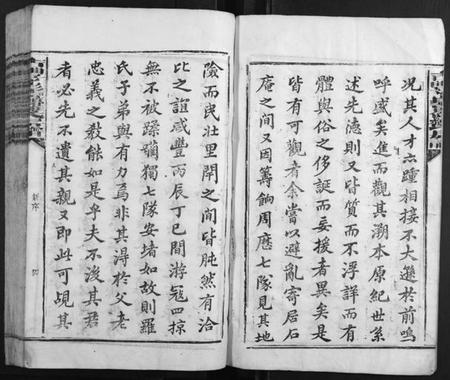 況其人才六踵相接不大遜於前嗚
呼盛矣進而觀其溯本原紀世系
述先德則又皆質而不浮詳而有
體與俗之侈誕而妄援者異矣是
皆有可觀者余嘗以避亂寄居石
庵之間又因籌餉周應七隊見其地
險而民壯里閈之間皆肫然有洽
比之誼咸豐丙辰丁巳間游寇四掠
無不被蹂躪獨七隊安堵如故則羅
氏子弟與有力焉非其淂於父老
忠義之教能如是乎夫不後其君
者必先不遺其親又即此可覘其
新序